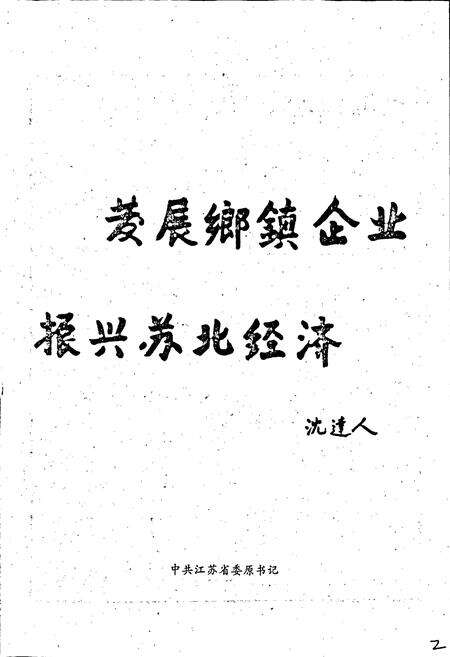 发展鄉鎮企业
振兴苏北经济
沈達人
中共江苏省委原书记
2